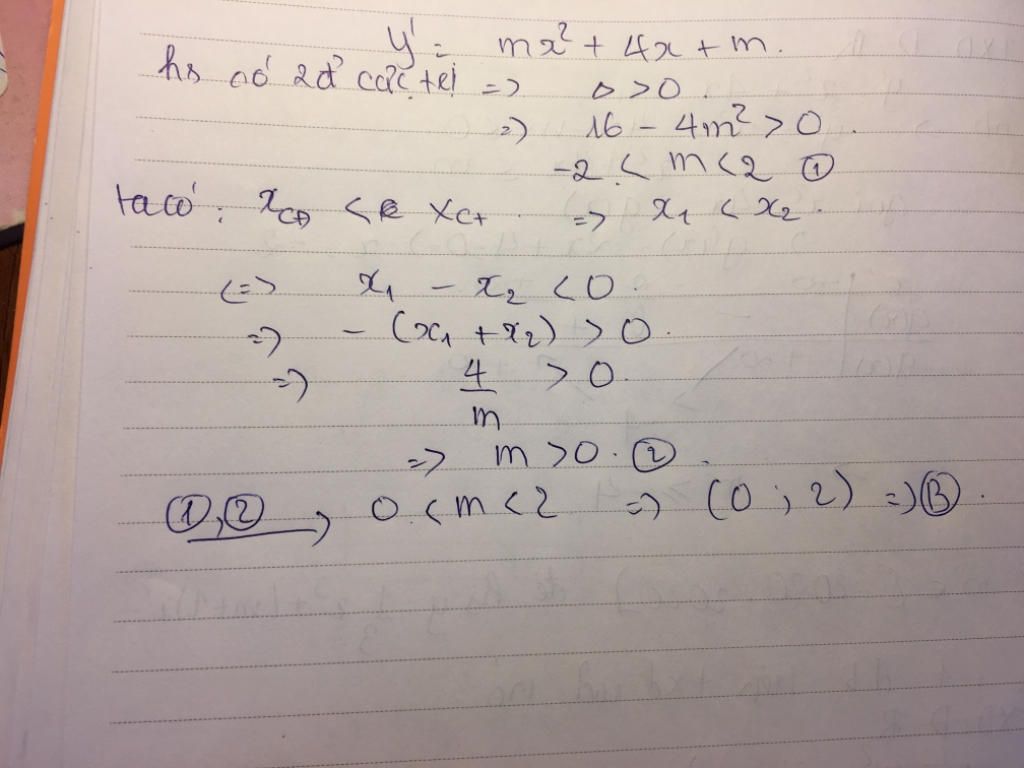 y' = mx² + 4x + m.
hs có 2đ' cực trị => Δ > 0.
=> 16 - 4m² > 0.
-2 < m < 2 ①
ta có: x_CĐ < x_CT => x₁ < x₂.
<=> x₁ - x₂ < 0
=> - (x₁ + x₂) > 0.
=> 4/m > 0.
=> m > 0. ②
①,② → 0 < m < 2 => (0 ; 2) => Ⓑ.